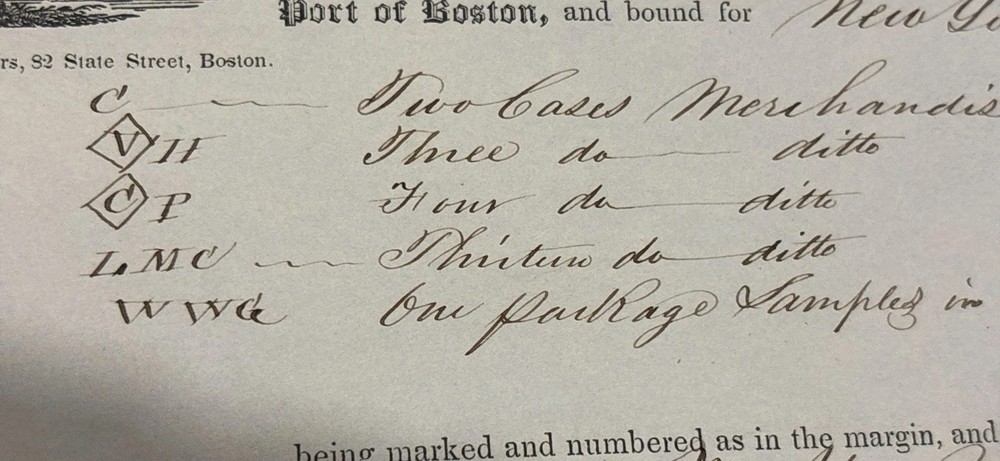 Port of Boston, and bound for New Yo
rs, 82 State Street, Boston.
C Two Cases Merchandis
V H Three do ditto
C P Four do ditto
L.M C Thirteen do ditto
W W G One package Samples in
being marked and numbered as in the margin, and